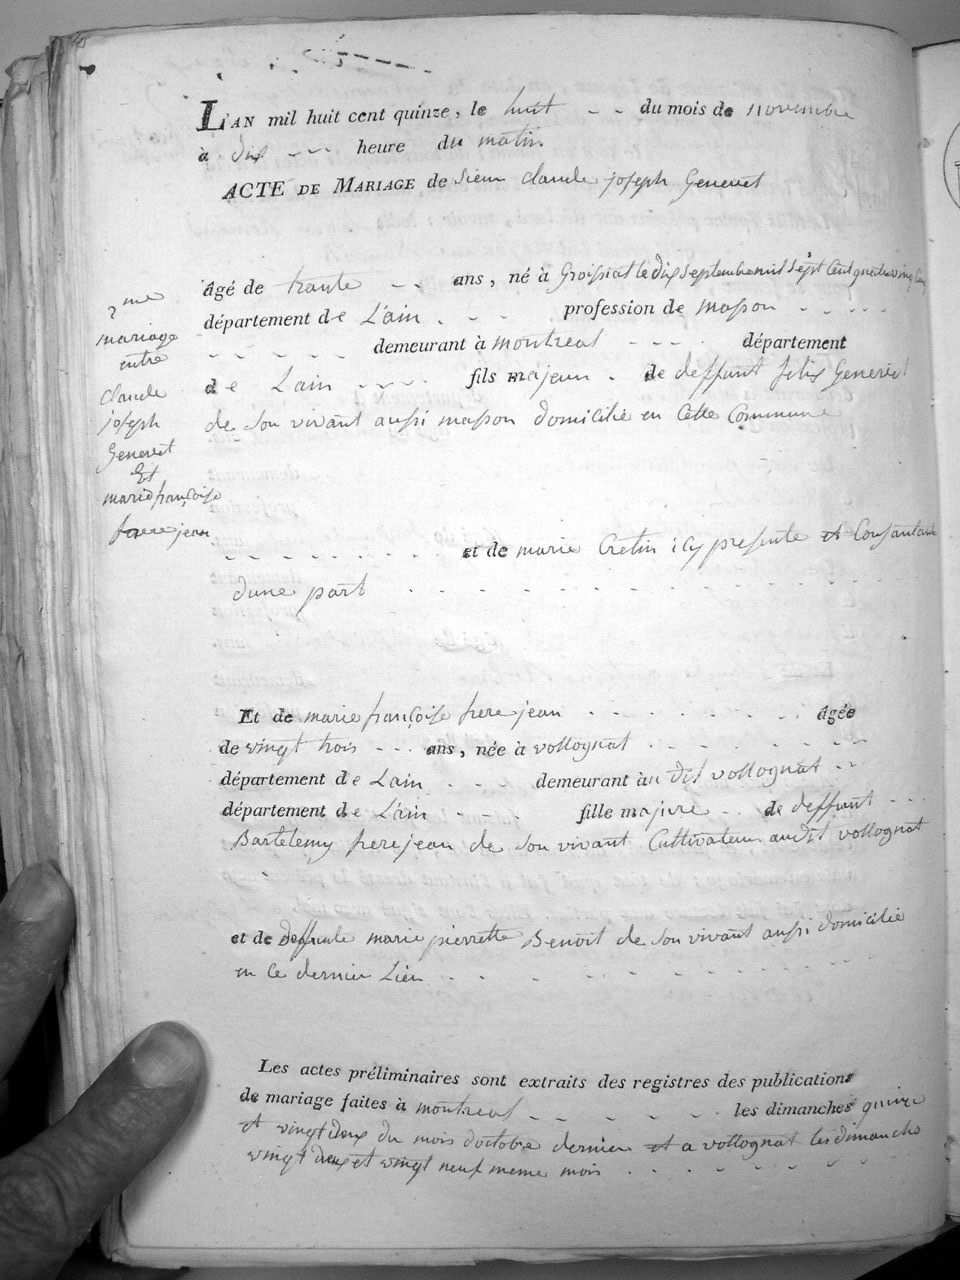 L'AN mil huit cent quinze, le huit - - du mois de novembre
à dix - - - heure du matin
ACTE DE MARIAGE de Sieur claude joseph Genevet
âgé de trante - - ans, né à Groissiat le dix septembre mil sept cent quatre vingt cinq
département de L'ain . - - profession de masson - - - - -
- - - - - demeurant à montreal - - - . département
de Lain - - - - . fils majeur . de deffunt felix Genevet
de son vivant aussi masson domicilié en Cette Commune
2me
mariage
entre
claude
joseph
Genevet
Et
marie françoise
frere jean
- - - - - - - - - et de marie Cretin icy presente et Consantante
dune part - - - - - - - - - - - -
Et de marie françoise frere jean - - - - - - - - âgée
de vingt trois - - - ans, née à vollognat - - - - - - - -
département de Lain - - - demeurant àu dit vollognat - -
département de L'ain - - fille majure - - de deffunt - - -
Bartelemy frere jean de son vivant Cultivateur audit vollognat
et de deffunte marie pierrette Benoit de son vivant aussi domicilié
en Ce dernier Lieu - - - - - - - - - - - -
Les actes préliminaires sont extraits des registres des publications
de mariage faites à montreal - - - - - - - les dimanches quinze
et vingt deux du mois doctobre dernier et a vollognat les dimanche
vingt deux et vingt neuf meme mois - - - - - - - - - -